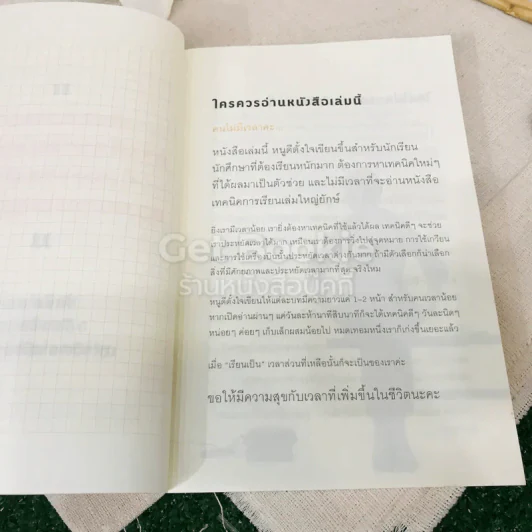 ใครควรอ่านหนังสือเล่มนี้
คนไม่มีเวลาค่ะ
หนังสือเล่มนี้ หนูดีตั้งใจเขียนขึ้นสำหรับนักเรียน
นักศึกษาที่ต้องเรียนหนักมาก ต้องการหาเทคนิคใหม่ๆ
ที่ได้ผลมาเป็นตัวช่วย และไม่มีเวลาที่จะอ่านหนังสือ
เทคนิคการเรียนเล่มใหญ่ยักษ์
ยิ่งเรามีเวลาน้อย เรายิ่งต้องหาเทคนิคที่ใช้แล้วได้ผล เทคนิคดีๆ จะช่วย
เราประหยัดเวลาได้มาก เหมือนเราต้องการวิ่งไปสู่จุดหมาย การใช้เกวียน
และการใช้เครื่องบินนั้นประหยัดเวลาต่างกันมาก ถ้ามีตัวเลือกก็น่าเลือก
สิ่งที่มีศักยภาพและประหยัดเวลามากที่สุด จริงไหม
หนูดีตั้งใจเขียนให้แต่ละบทมีความยาวแค่ 1-2 หน้า สำหรับคนเวลาน้อย
หากเปิดอ่านผ่านๆ แค่วันละห้านาทีสิบนาทีก็จะได้เทคนิคดีๆ วันละนิดๆ
หน่อยๆ ค่อยๆ เก็บเล็กผสมน้อยไป หมดเทอมหนึ่งเราก็เก่งขึ้นเยอะแล้ว
เมื่อ "เรียนเป็น" เวลาส่วนที่เหลือนั้นก็จะเป็นของเราค่ะ
ขอให้มีความสุขกับเวลาที่เพิ่มขึ้นในชีวิตนะคะ
ร้านหนังสือบุ๊คที่